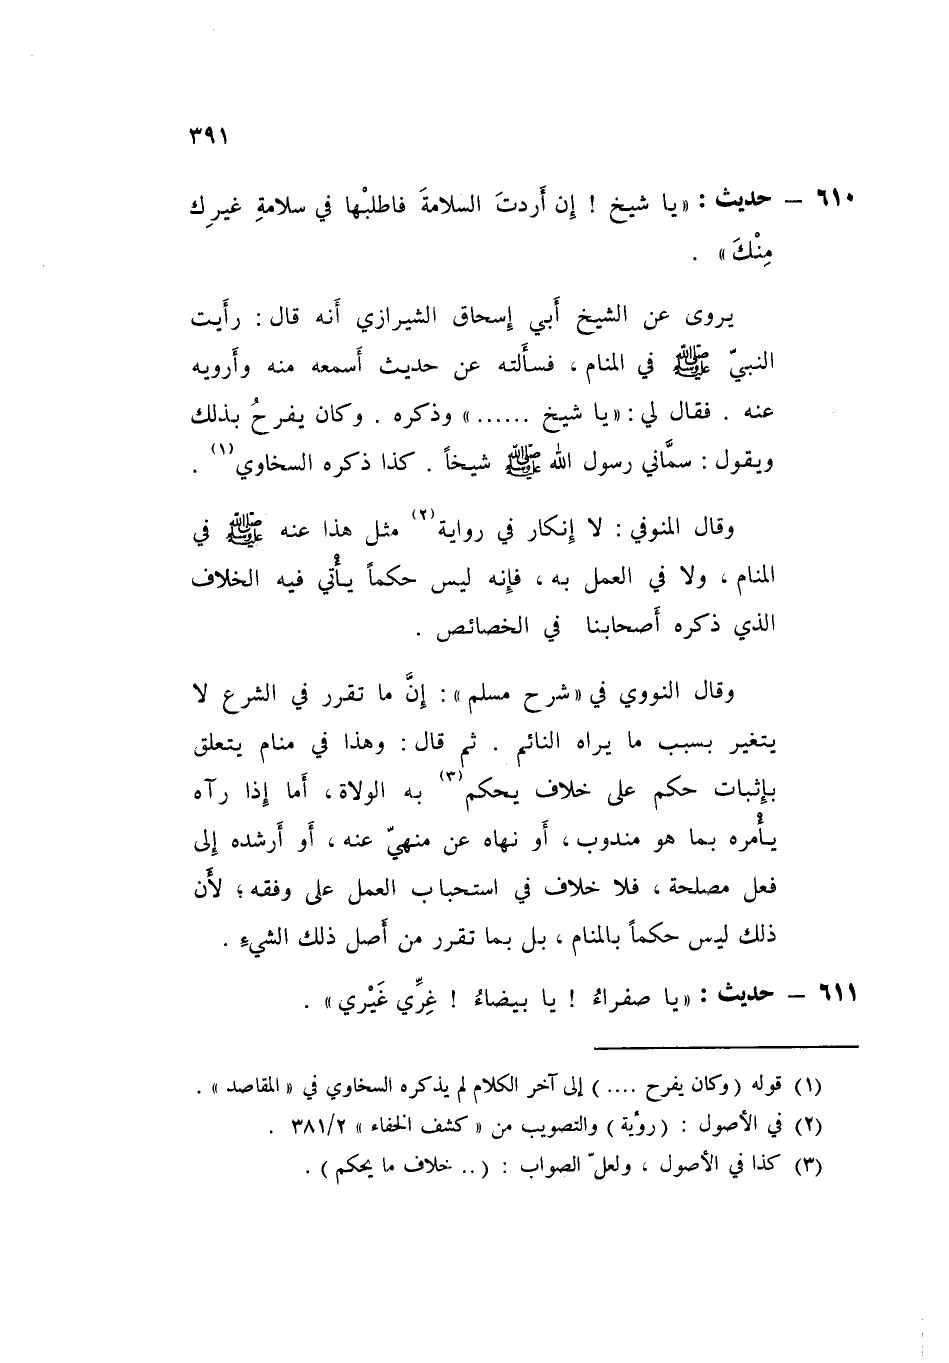 ٣٩١
٦١٠ – حديث : «يا شيخ ! إن أَردتَ السلامةَ فاطلبْها في سلامةِ غيرِك
مِنْكَ» .
يروى عن الشيخ أَبي إسحاق الشيرازي أَنه قال : رأَيت
النبيّ ﷺ في المنام ، فسأَلته عن حديث أَسمعه منه وأَرويه
عنه . فقال لي : «يا شيخ ......» وذكره . وكان يفرحُ بذلك
ويقول : سمَّاني رسول الله ﷺ شيخاً . كذا ذكره السخاوي(١) .
وقال المنوفي : لا إِنكار في رواية(٢) مثل هذا عنه ﷺ في
المنام ، ولا في العمل به ، فإِنه ليس حكماً يأْتي فيه الخلاف
الذي ذكره أَصحابنا في الخصائص .
وقال النووي في «شرح مسلم» : إِنَّ ما تقرر في الشرع لا
يتغير بسبب ما يراه النائم . ثم قال : وهذا في منام يتعلق
بإِثبات حكم على خلاف يحكم(٣) به الولاة ، أَما إِذا رآه
يأْمره بما هو مندوب ، أَو نهاه عن منهيّ عنه ، أَو أَرشده إِلى
فعل مصلحة ، فلا خلاف في استحباب العمل على وفقه ؛ لأَن
ذلك ليس حكماً بالمنام ، بل بما تقرر من أَصل ذلك الشيءِ .
٦١١ – حديث : «يا صفراءُ ! يا بيضاءُ ! غِرِّي غَيْري» .
(١) قوله (وكان يفرح ....) إلى آخر الكلام لم يذكره السخاوي في « المقاصد » .
(٢) في الأصول : (رؤية) والتصويب من « كشف الخفاء » ٣٨١/٢ .
(٣) كذا في الأصول ، ولعلّ الصواب : (.. خلاف ما يحكم) .